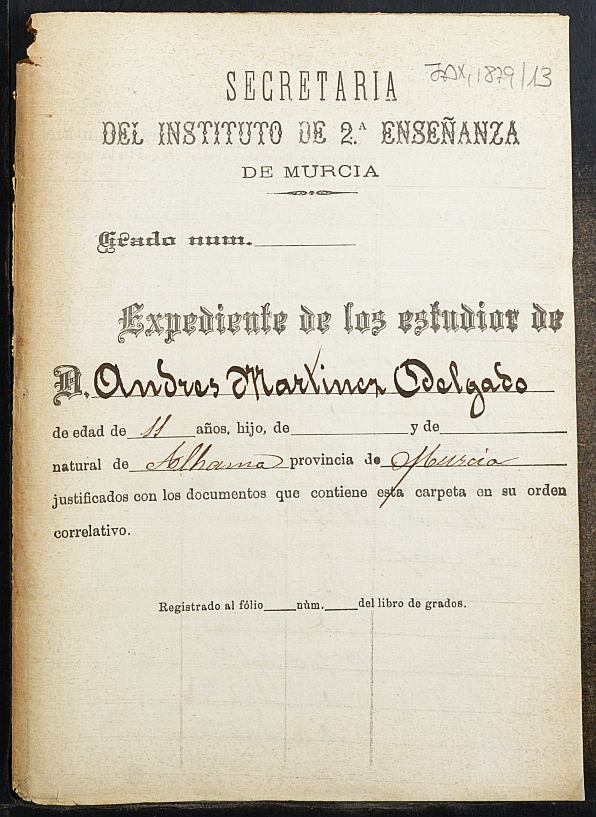 JAX, 1879/13
SECRETARIA
DEL INSTITUTO DE 2.ª ENSEÑANZA
DE MURCIA
Grado num.
Expediente de los estudios de
D. Andres Martinez Delgado
de edad de 11 años, hijo, de y de
natural de Alhama provincia de Murcia
justificados con los documentos que contiene esta carpeta en su orden
correlativo.
Registrado al fólio núm. del libro de grados.